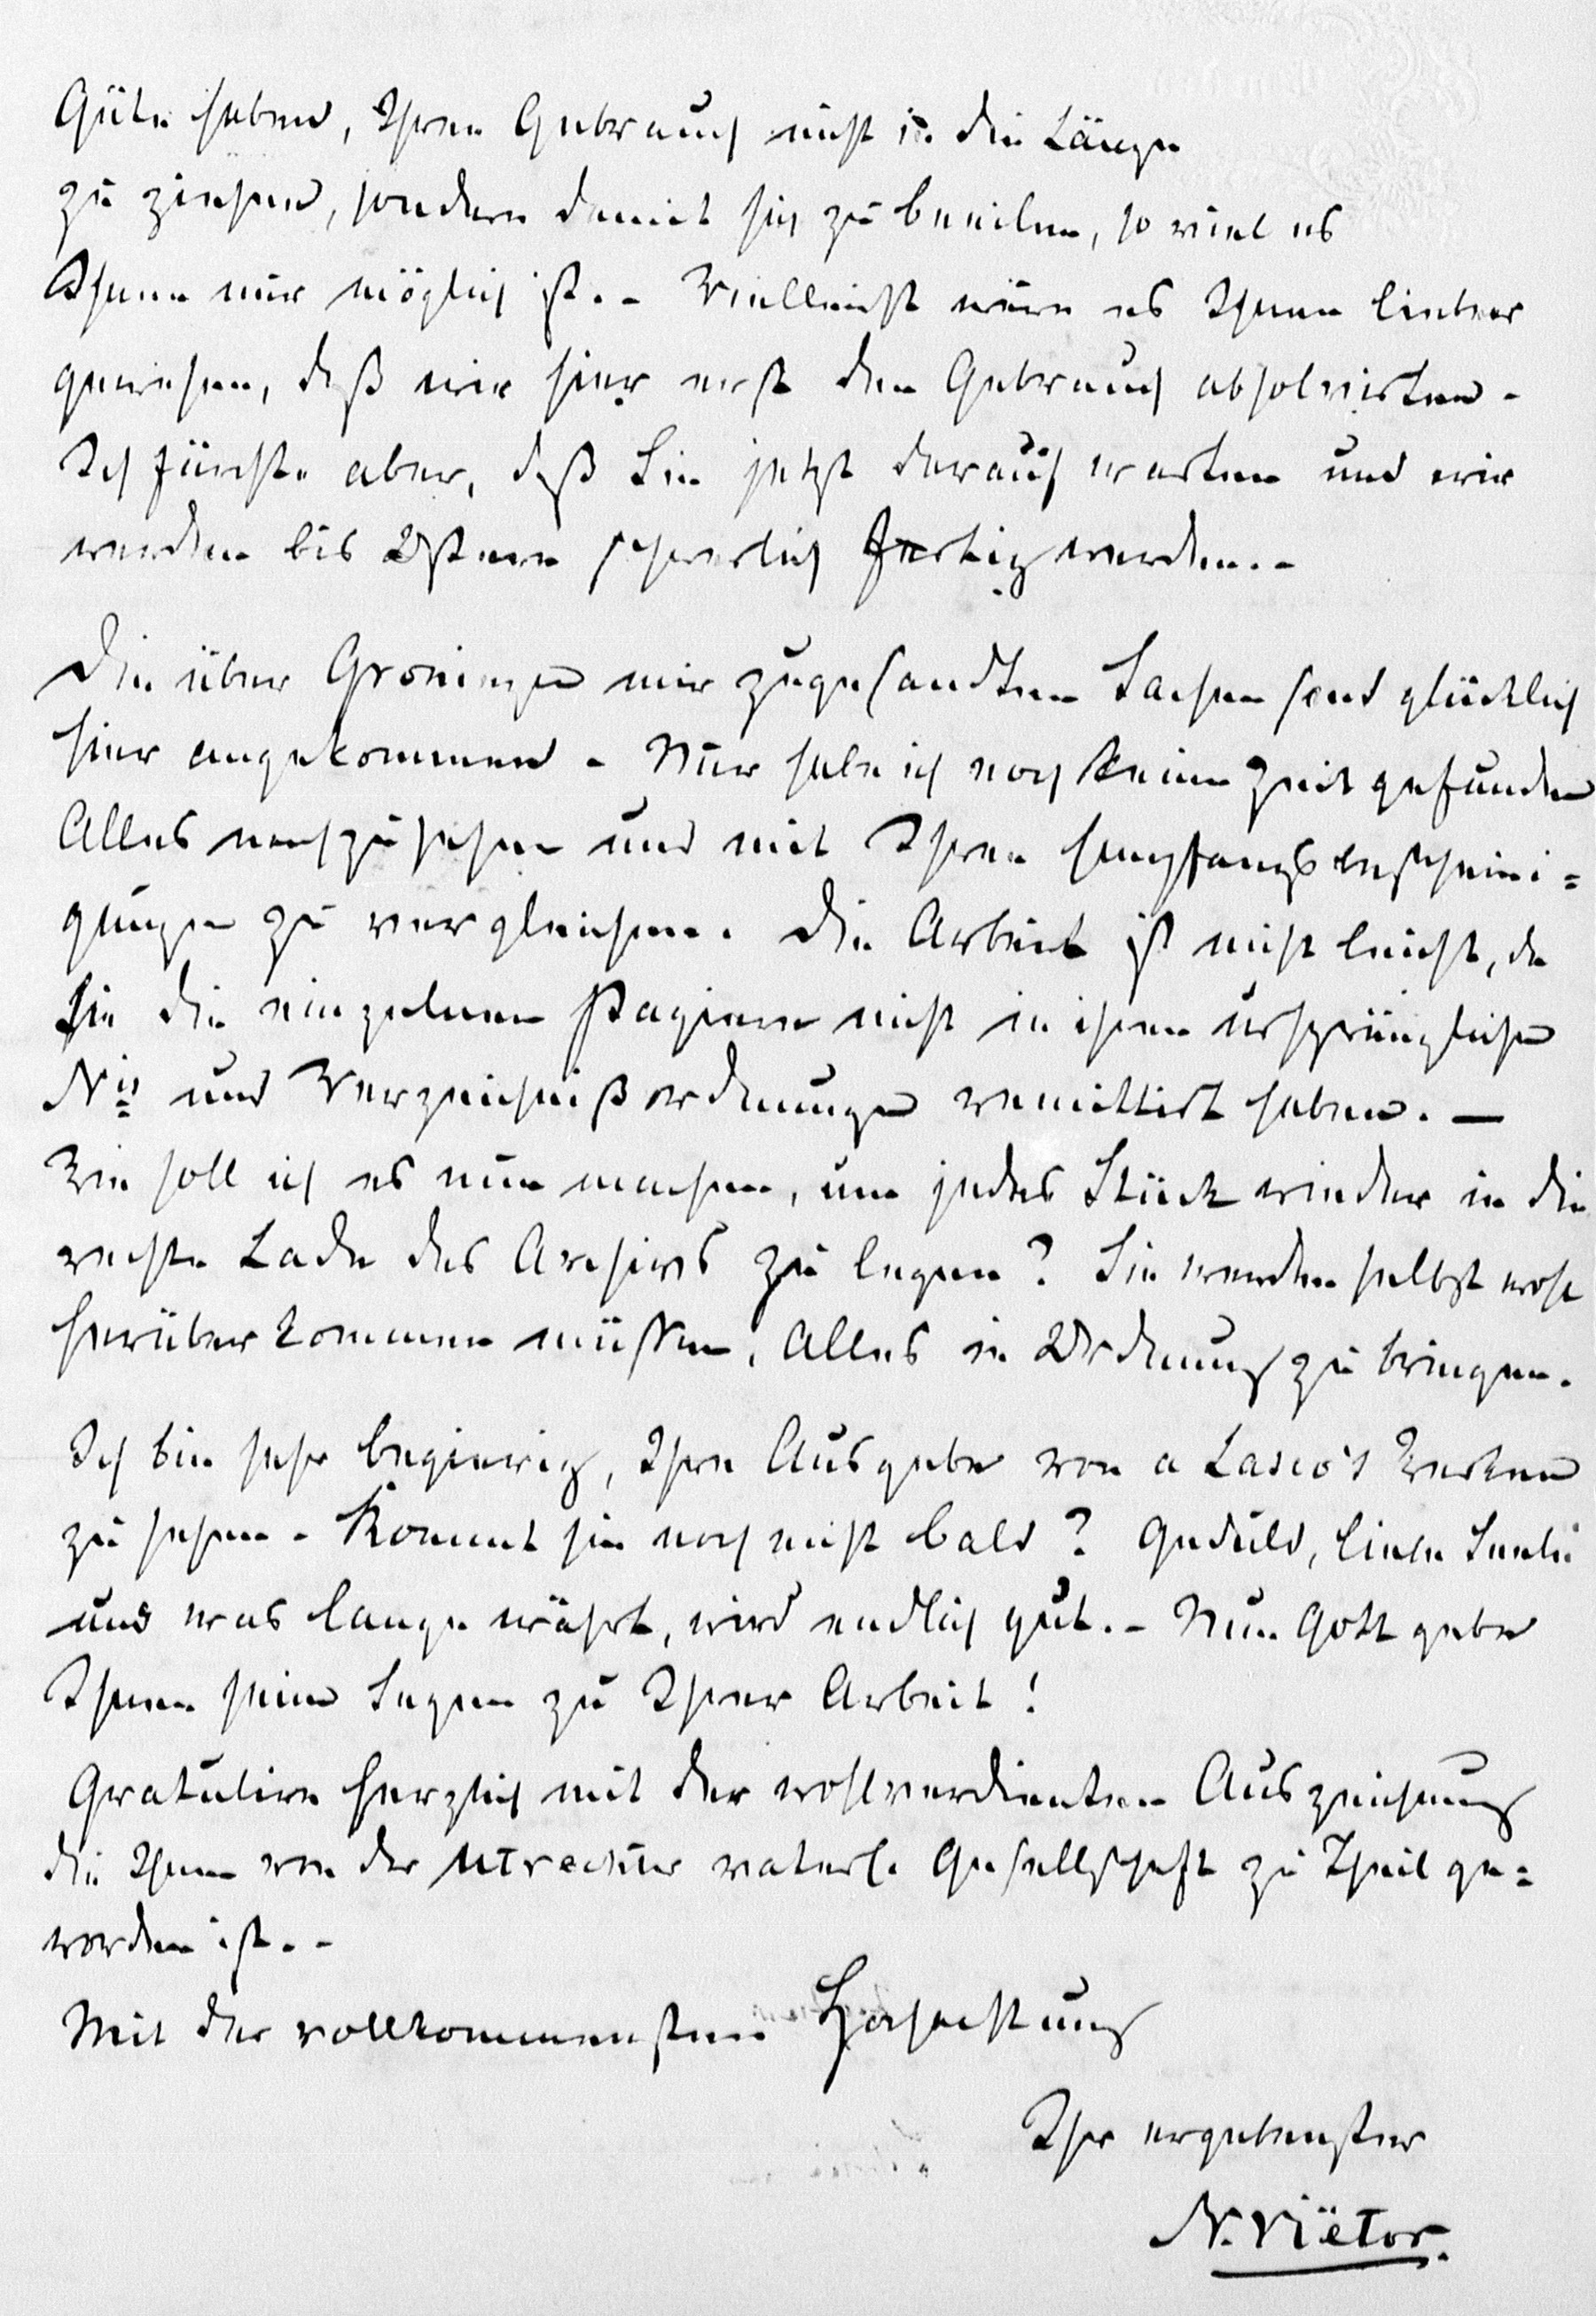 Güte haben, Ihren Gebrauch nicht in die Länge
zu ziehen, sondern damit sich zu beeilen, so viel es
Ihnen nur möglich ist. - Vielleicht wäre es Ihnen lieber
gewesen, daß wir hier erst den Gebrauch absolvirten -
Ich fürchte aber, daß Sie jetzt darauf warten und wir
werden bis Ostern schwerlich fertig werden. -
Die über Groningen mir zugesandten Sachen sind glücklich
hier angekommen - Nur habe ich noch keine Zeit gefunden
Alles nachzusehen und mit Ihren Empfangsbescheini=
gungen zu vergleichen. Die Arbeit ist nicht leicht, da
Sie die einzelnen Papiere nicht in ihren ursprünglichen
Nis und Verzeichnißordnungen remittirt haben. —
Wie soll ich es nun machen, um jedes Stück wieder in die
rechte Lade des Archivs zu legen? Sie werden selbst wohl
herüber kommen müssen, Alles in Ordnung zu bringen.
Ich bin sehr begierig, Ihre Ausgabe von a Lasco's Werken
zu sehen - Kommt sie noch nicht bald? Geduld, liebe Seele
und was lange währt, wird endlich gut. - Nun Gott gebe
Ihnen seinen Segen zu Ihrer Arbeit!
Gratulire herzlich mit der wohlverdienten Auszeichnung
die Ihnen von der Utrechter vaterl. Gesellschaft zu Theil ge=
worden ist. -
Mit der vollkommensten Hochachtung
Ihr ergebenster
N. Viëtor.